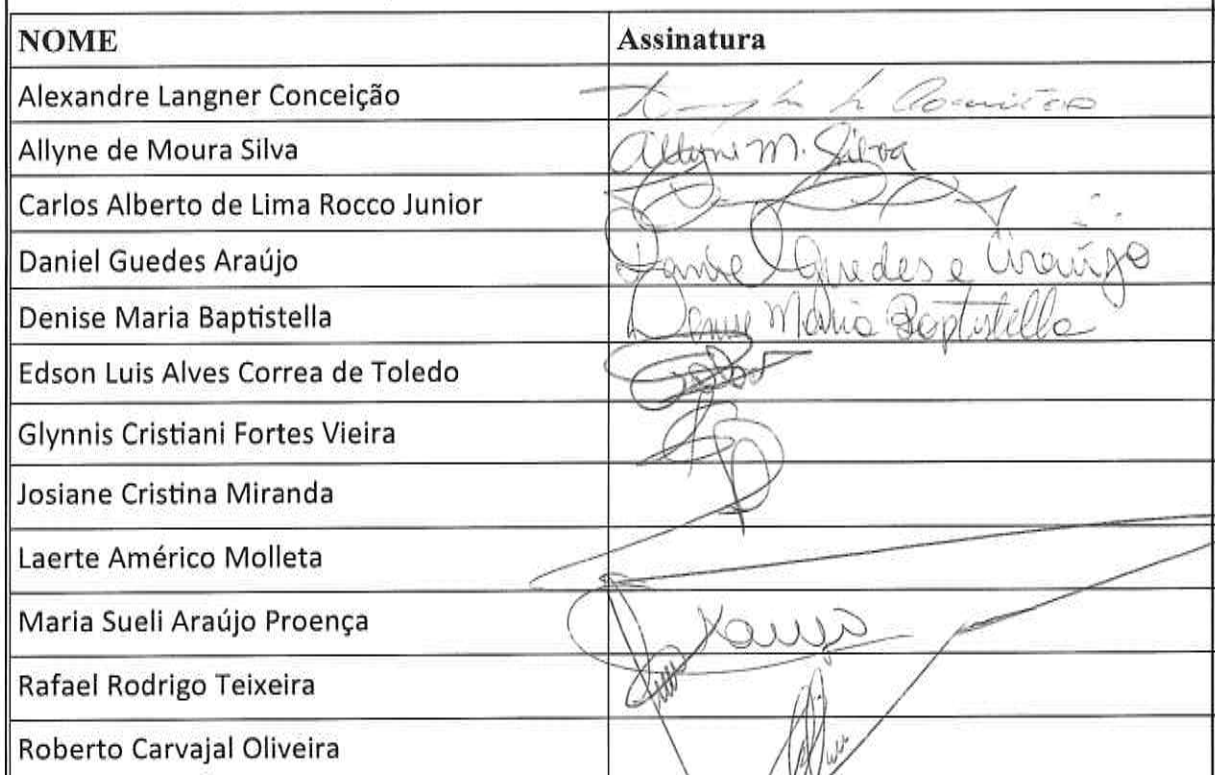 NOME Assinatura
Alexandre Langner Conceição
Allyne de Moura Silva Allyne M. Silva
Carlos Alberto de Lima Rocco Junior
Daniel Guedes Araújo Daniel Guedes e Araújo
Denise Maria Baptistella Denise Maria Baptistella
Edson Luis Alves Correa de Toledo
Glynnis Cristiani Fortes Vieira
Josiane Cristina Miranda
Laerte Américo Molleta
Maria Sueli Araújo Proença Araujo
Rafael Rodrigo Teixeira
Roberto Carvajal Oliveira